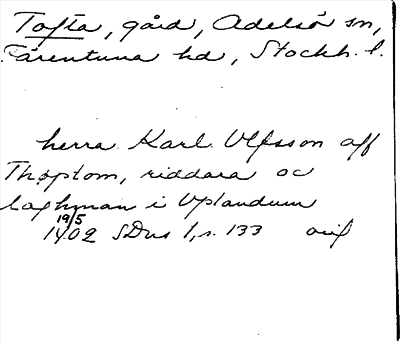 Tofta, gård, Adelsö sn,
Färentuna hd, Stockh. l.
herra Karl Ulfsson aff
Thoptom, riddara oc
laghman i Uplandum
19/5
1402 SDns 1, s. 133 orig